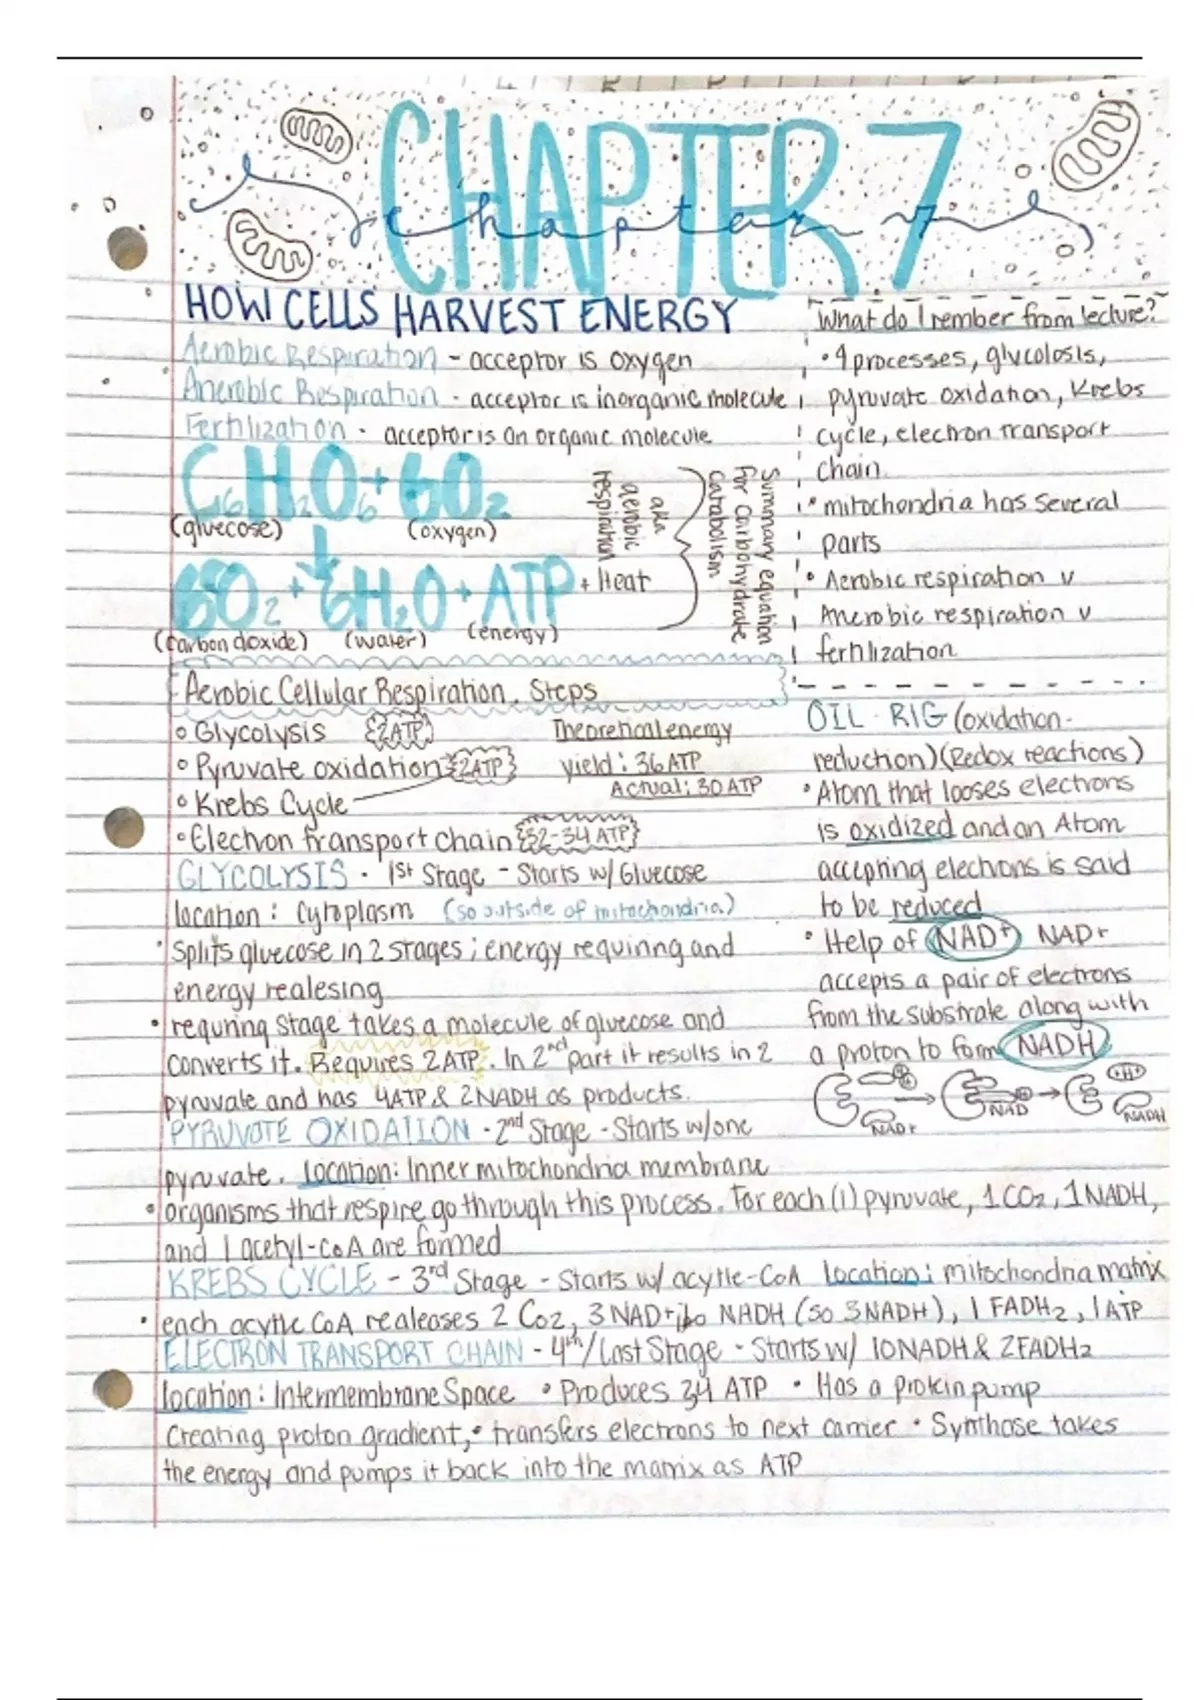 CHAPTER 7
chapter 7
HOW CELLS HARVEST ENERGY
Aerobic Respiration - acceptor is oxygen
Anerobic Respiration - acceptor is inorganic molecule
Fertilization - acceptor is an organic molecule
C6H12O6 + 6O2
(gluecose) (oxygen)
6O2 + 6H2O + ATP + Heat
(carbon dioxide) (water) (energy)
aka
aerobic
respiration
Summary equation
for carbohydrate
catabolism
What do I rember from lecture?
• 4 processes, glycolosis,
pyruvate oxidation, Krebs
cycle, electron transport
chain
• mitochondria has several
parts
• Aerobic respiration v
Anerobic respiration v
fertilization
Aerobic Cellular Respiration. Steps
• Glycolysis 2ATP
• Pyruvate oxidation 2ATP
• Krebs Cycle
• Electron transport chain 32-34 ATP
Theoretical energy
yield: 36 ATP
Actual: 30 ATP
OIL - RIG (oxidation-
reduction) (Redox reactions)
• Atom that looses electrons
is oxidized and an Atom
accepting electrons is said
to be reduced
• Help of NAD+ NAD+
accepts a pair of electrons
from the substrate along with
a proton to form NADH
NAD+ NAD +H+ NADH
GLYCOLYSIS - 1st Stage - Starts w/ Gluecose
location: Cytoplasm (so outside of mitochondria)
• Splits gluecose in 2 stages; energy requiring and
energy realesing
• requring stage takes a molecule of gluecose and
converts it. Requires 2 ATP. In 2nd part it results in 2
pyruvate and has 4ATP & 2NADH as products.
PYRUVATE OXIDATION - 2nd Stage - Starts w/ one
pyruvate. Location: Inner mitochondria membrane
• organisms that respire go through this process. For each (1) pyruvate, 1 CO2, 1 NADH,
and 1 acetyl-CoA are formed
KREBS CYCLE - 3rd Stage - Starts w/ acytle-CoA Location: mitochondria matrix
• each acytle CoA realeases 2 Co2, 3 NAD+ to NADH (so 3NADH), 1 FADH2, 1 ATP
ELECTRON TRANSPORT CHAIN - 4th/Last Stage - Starts w/ 10NADH & 2FADH2
location: Intermembrane Space • Produces 34 ATP • Has a protein pump
Creating proton gradient, • transfers electrons to next carrier • Synthase takes
the energy and pumps it back into the matrix as ATP